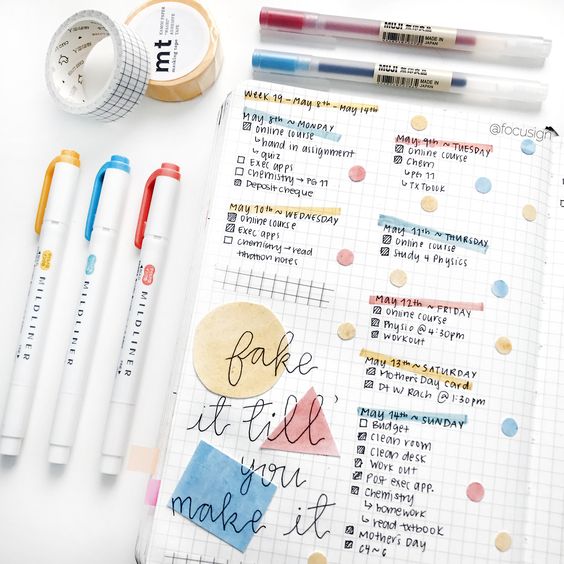 mt
masking tape
MUJI 無印良品 MADE IN JAPAN
MUJI 無印良品 MADE IN JAPAN
@focusign
WEEK 19 - MAY 8th - MAY 14th
MAY 8th ~ MONDAY
Online course
↳ hand in assignment
↳ quiz
Exec apps
Chemistry → pg 11
Deposit cheque
MAY 9th ~ TUESDAY
Online course
Chem
↳ pg 11
↳ TXtbook
MAY 10th ~ WEDNESDAY
Online course
Exec apps
Chemistry → read
titration notes
MAY 11th ~ THURSDAY
Online course
Study 4 Physics
MAY 12th ~ FRIDAY
Online course
Physio @ 4:30pm
Workout
MAY 13th ~ SATURDAY
Mother's Day Card
Dt w/ Rach @ 1:30pm
MAY 14th ~ SUNDAY
Budget
Clean room
Clean desk
Work out
Post exec app.
Chemistry
↳ homework
↳ read txtbook
Mother's Day
C4~6
fake
it till'
you
make it
MILDLINER
MILDLINER
MILDLINER